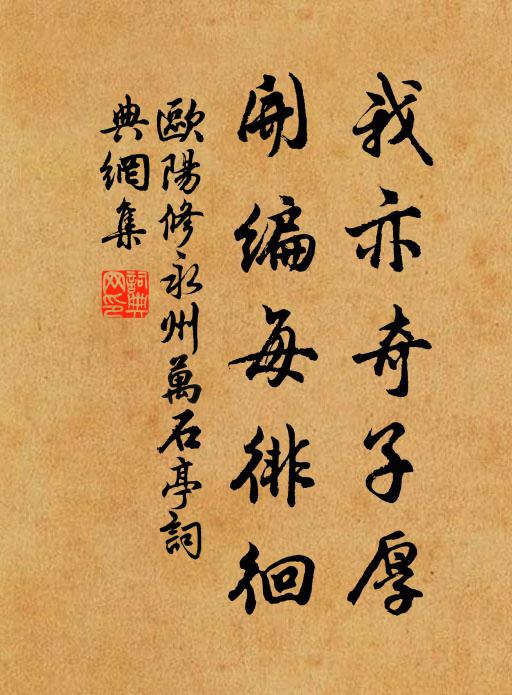 我亦奇子厚
開編每徘徊
歐陽修永州萬石亭詞
典網集
詞典網印